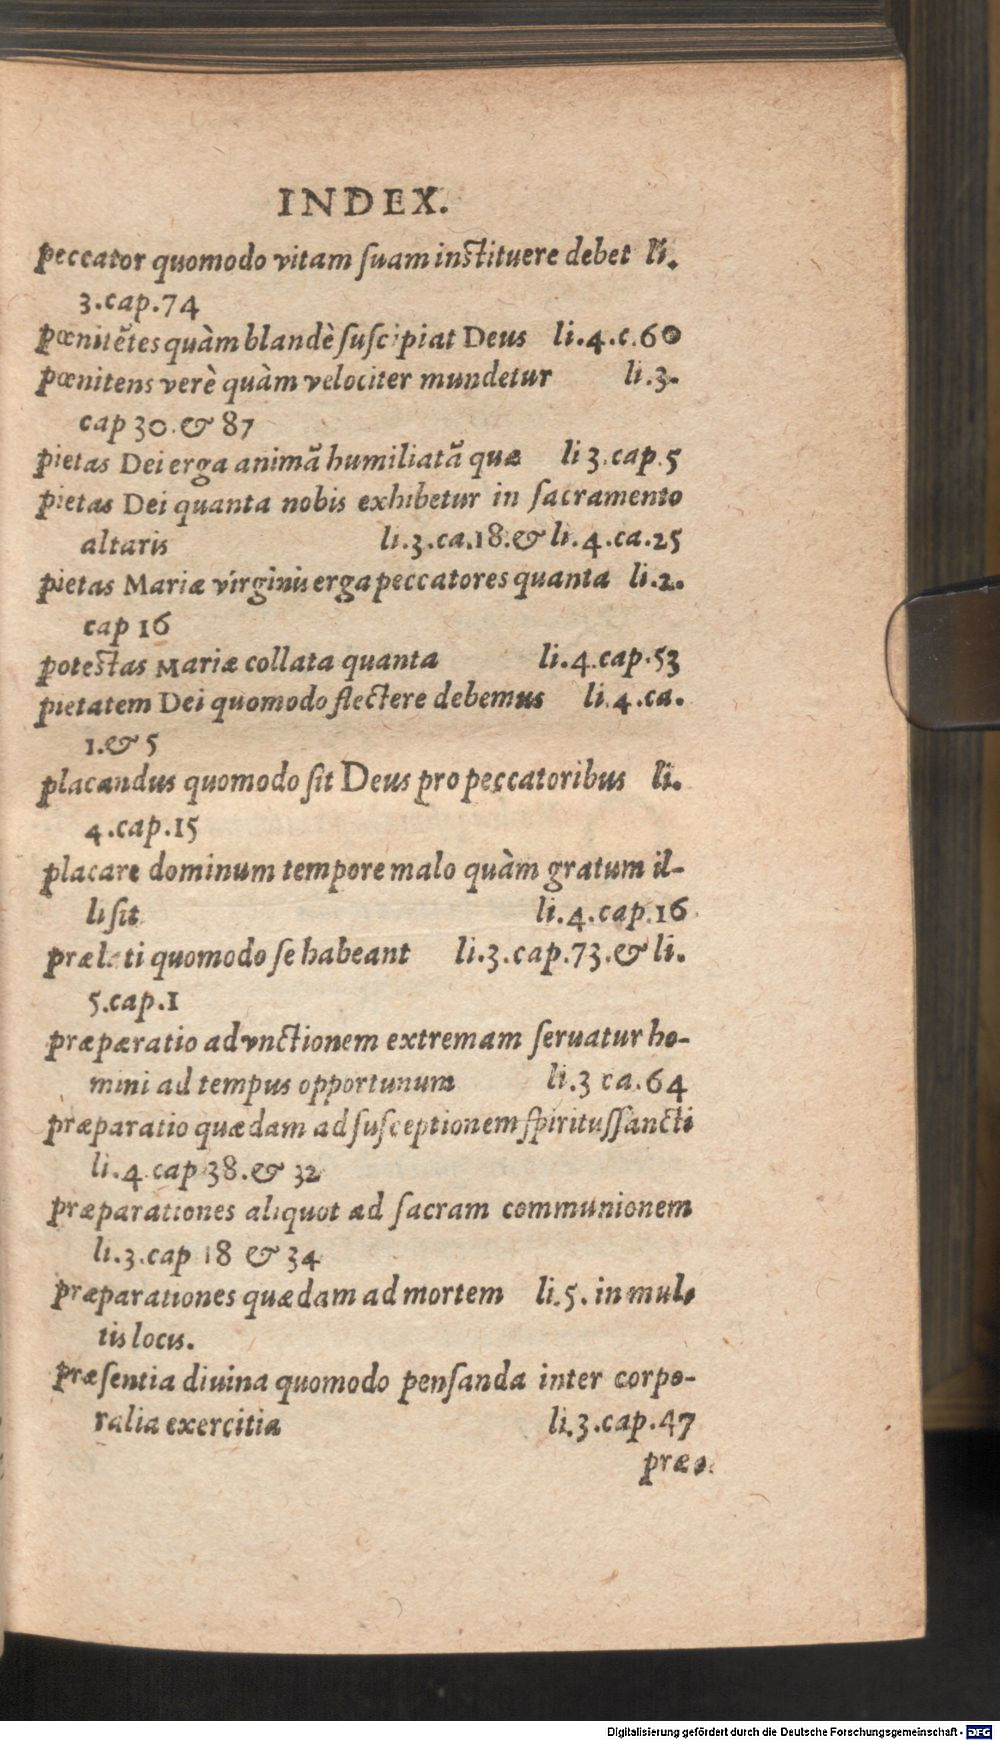 INDEX.
peccator quomodo vitam ſuam inſtituere debet li.
3.cap.74
pœnitẽtes quàm blandè ſuſcipiat Deus li.4.c.60
pœnitens verè quàm velociter mundetur li.3.
cap 30.& 87
pietas Dei erga animã humiliatã quæ li 3.cap.5
pietas Dei quanta nobis exhibetur in ſacramento
altaris li.3.ca.18.& li.4.ca.25
pietas Mariæ virginis erga peccatores quanta li.2.
cap 16
poteſtas Mariæ collata quanta li.4.cap.53
pietatem Dei quomodo flectere debemus li.4.ca.
1.& 5
placandus quomodo ſit Deus pro peccatoribus li.
4.cap.15
placare dominum tempore malo quàm gratum il-
li ſit li.4.cap.16
prælati quomodo ſe habeant li.3.cap.73.& li.
5.cap.1
præpæratio ad vnctionem extremam ſeruatur ho-
mini ad tempus opportunum li.3 ca.64
præparatio quædam ad ſuſceptionem ſpirituſſancti
li.4.cap 38.& 32
præparationes aliquot ad ſacram communionem
li.3.cap 18 & 34
præparationes quædam ad mortem li.5. in mul-
tis locis.
præſentia diuina quomodo penſanda inter corpo-
ralia exercitia li.3.cap.47
præo.
Digitalisierung gefördert durch die Deutsche Forschungsgemeinschaft - DFG